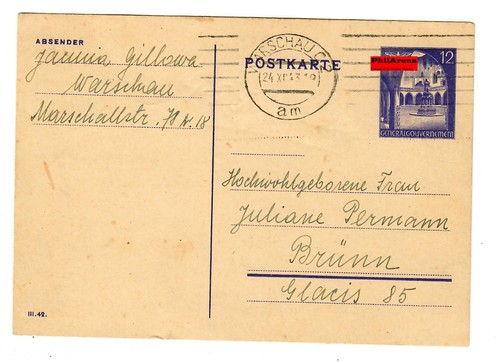 ABSENDER
Janina Gillowa
Warschau
Marschallstr. 78 W. 18
POSTKARTE
WARSCHAU C
24.XI.43.19
am
PhilArena
12
GENERALGOUVERNEMENT
Hochwohlgeborene Frau
Juliane Permann
Brünn
Glacis 85
III.42.